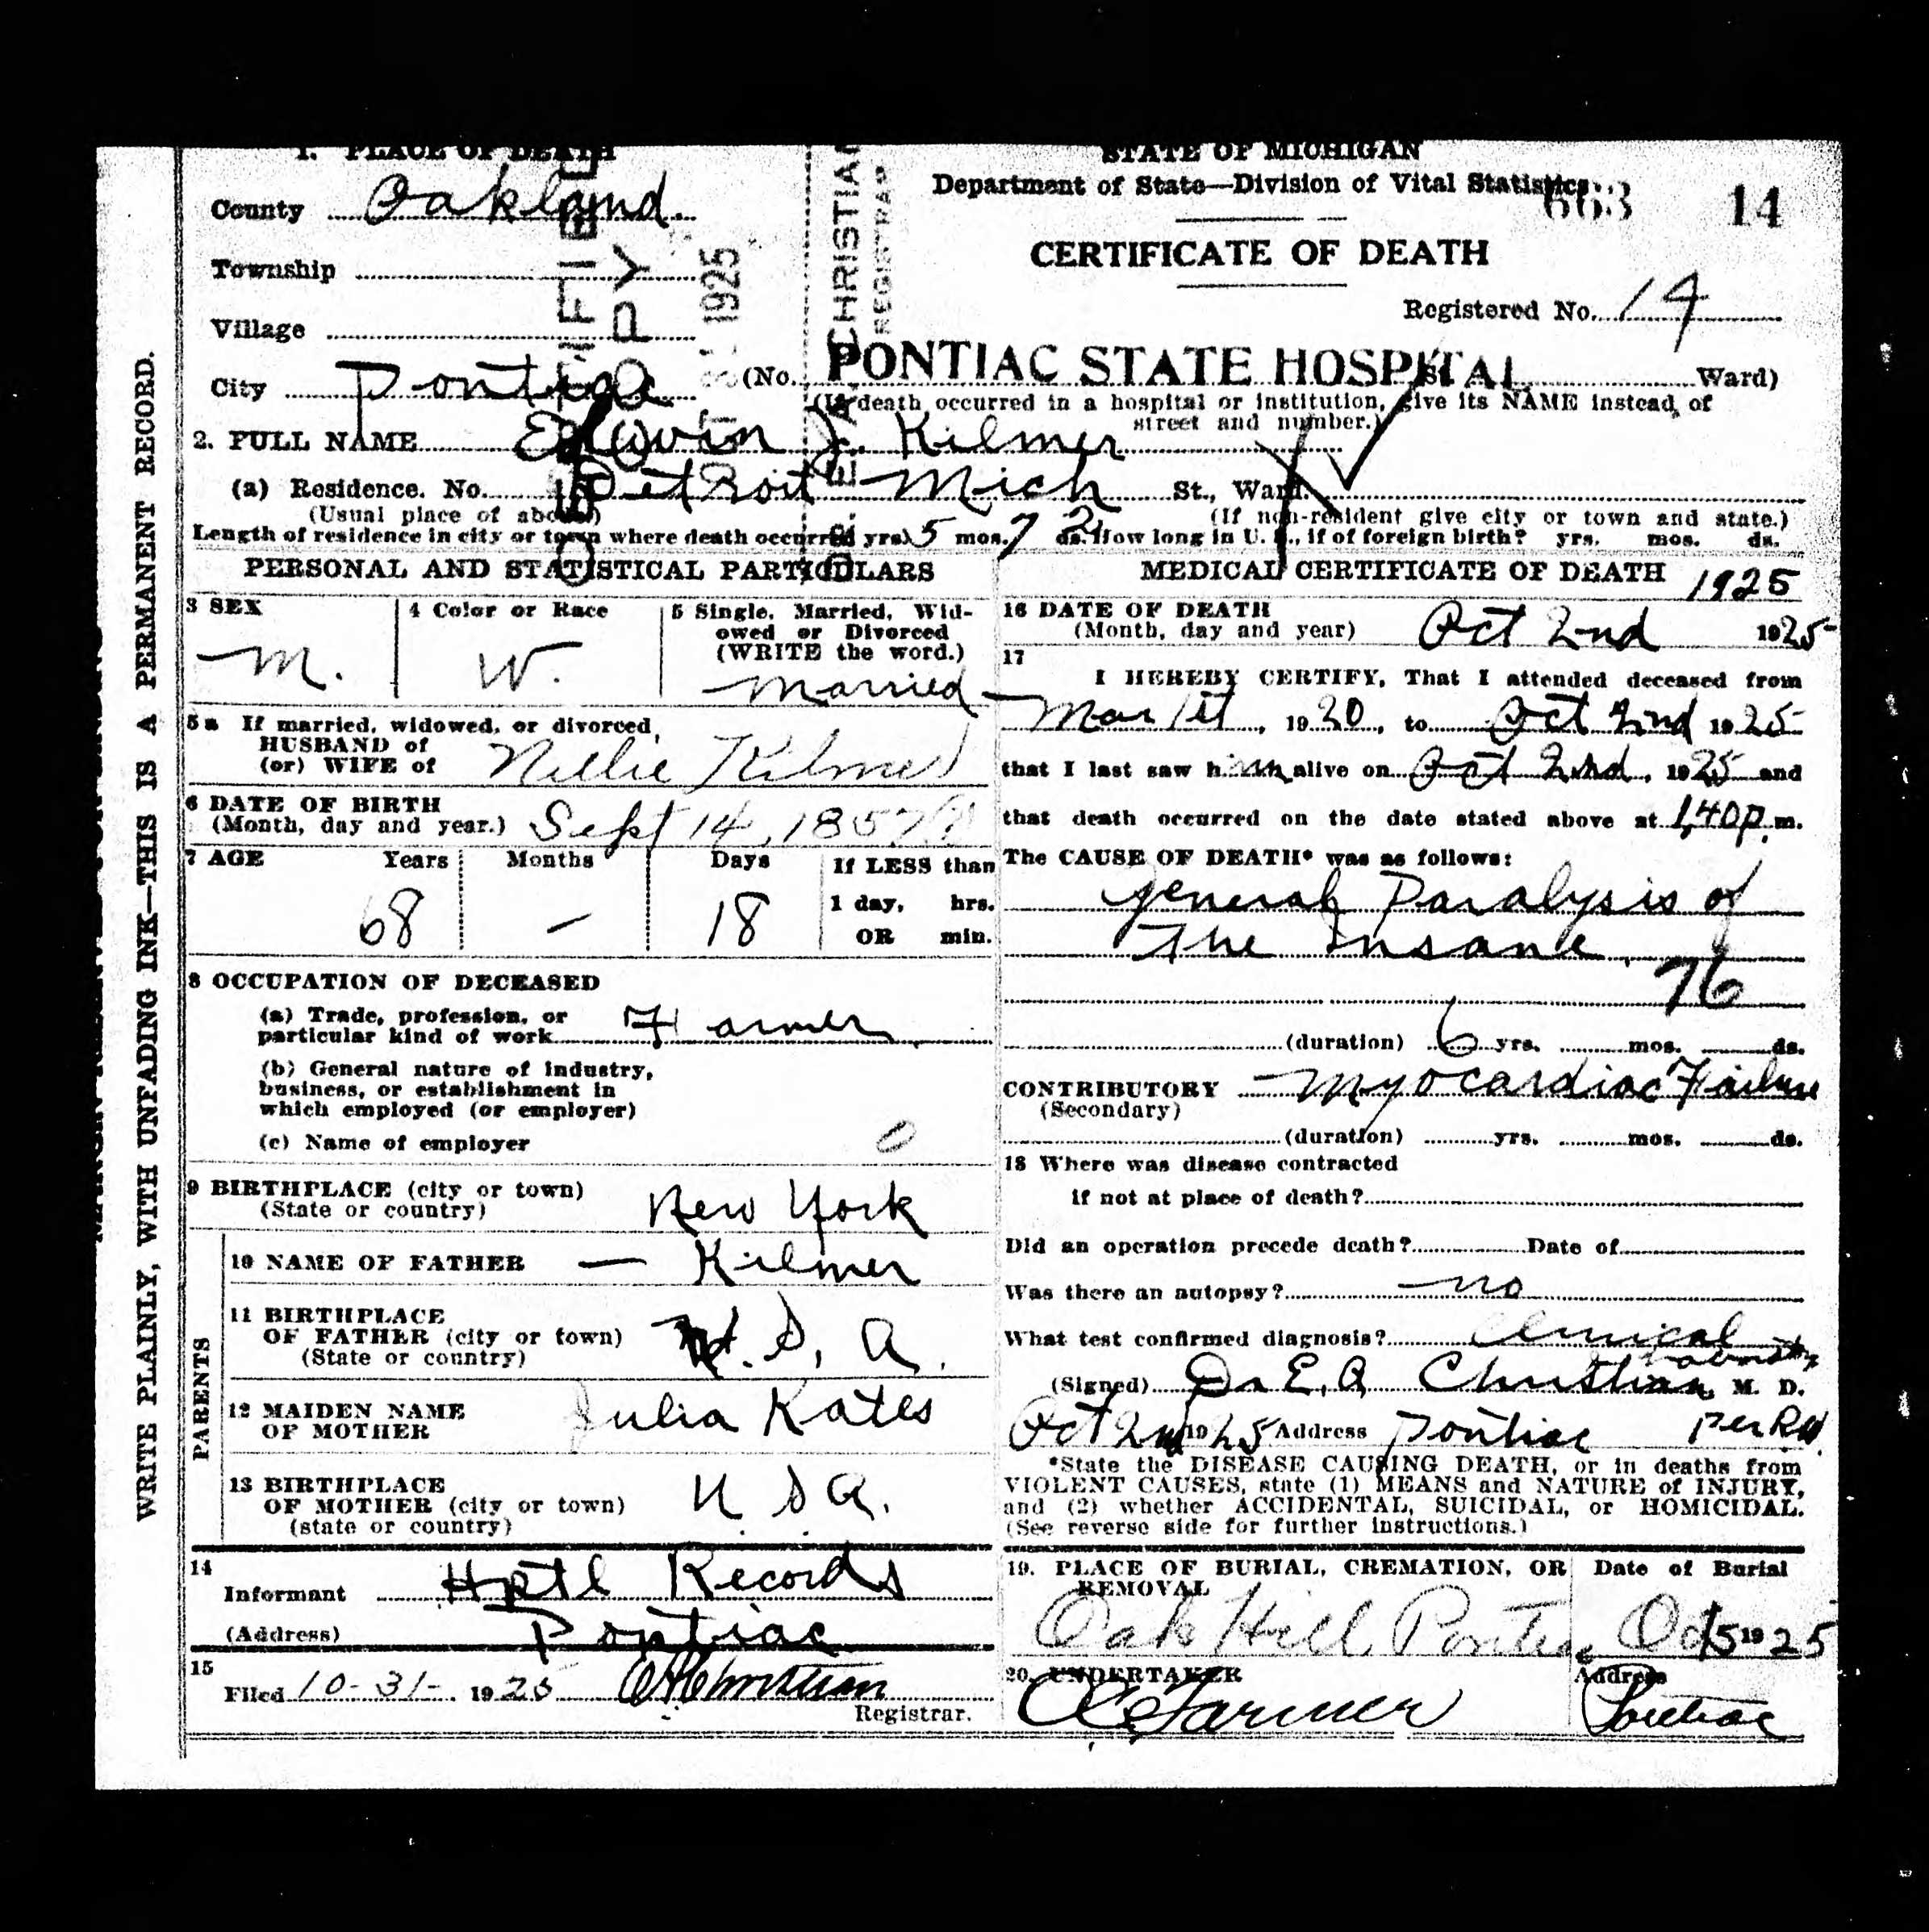 1. PLACE OF DEATH
County Oakland.
Township
Village
City Pontiac
STATE OF MICHIGAN
Department of State—Division of Vital Statistics
663 14
CERTIFICATE OF DEATH
Registered No. 14
(No. PONTIAC STATE HOSPITAL St. Ward)
(If death occurred in a hospital or institution, give its NAME instead of
street and number.)
CERTIFIED
COPY
1925
CHRISTIAN
REGISTRAR
2. FULL NAME Edwin J. Kilmer
(a) Residence. No. Detroit Mich St., Ward.
(Usual place of abode) (If non-resident give city or town and state.)
Length of residence in city or town where death occurred yrs. 5 mos. 7 ds. 2 How long in U. S., if of foreign birth? yrs. mos. ds.
PERSONAL AND STATISTICAL PARTICULARS
3 SEX
M.
4 Color or Race
W.
5 Single, Married, Wid-
owed or Divorced
(WRITE the word.)
Married
5a If married, widowed, or divorced,
HUSBAND of
(or) WIFE of Nellie Kilmer
6 DATE OF BIRTH
(Month, day and year.) Sept 14, 1857
7 AGE Years Months Days If LESS than
1 day, hrs.
68 — 18
OR min.
8 OCCUPATION OF DECEASED
(a) Trade, profession, or
particular kind of work Farmer
(b) General nature of industry,
business, or establishment in
which employed (or employer)
(c) Name of employer 0
9 BIRTHPLACE (city or town)
(State or country) New York
PARENTS
10 NAME OF FATHER — Kilmer
11 BIRTHPLACE
OF FATHER (city or town) U. S. A.
(State or country)
12 MAIDEN NAME
OF MOTHER Julia Kates
13 BIRTHPLACE
OF MOTHER (city or town) U S A.
(state or country)
14
Informant Hptl Records
(Address) Pontiac
15
Filed 10-31-, 1925 EAChristian
Registrar.
MEDICAL CERTIFICATE OF DEATH 1925
16 DATE OF DEATH
(Month, day and year) Oct 2nd 1925
17
I HEREBY CERTIFY, That I attended deceased from
Mar 1st, 1920, to Oct 2nd 1925
that I last saw him alive on Oct 2nd, 1925 and
that death occurred on the date stated above at 1,40 p. m.
The CAUSE OF DEATH* was as follows:
General Paralysis of
The Insane
76
(duration) 6 yrs. mos. ds.
CONTRIBUTORY Myocardiac Failure
(Secondary)
(duration) yrs. mos. ds.
18 Where was disease contracted
if not at place of death?
Did an operation precede death? Date of
Was there an autopsy? no
What test confirmed diagnosis? Clinical
(Signed) Dr E. A Christian, M. D.
Oct 2nd 1925 Address Pontiac Per RW
*State the DISEASE CAUSING DEATH, or in deaths from
VIOLENT CAUSES, state (1) MEANS and NATURE of INJURY,
and (2) whether ACCIDENTAL, SUICIDAL, or HOMICIDAL.
(See reverse side for further instructions.)
19. PLACE OF BURIAL, CREMATION, OR REMOVAL
Oak Hill, Pontiac
Date of Burial
Oct 5 1925
20. UNDERTAKER
C Farmer
Address
Pontiac
WRITE PLAINLY, WITH UNFADING INK—THIS IS A PERMANENT RECORD.